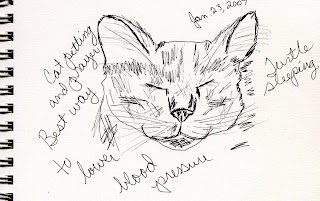 Jan 23, 2009
Cat petting
and
Best way
to lower
blood
pressure
Turtle
sleeping